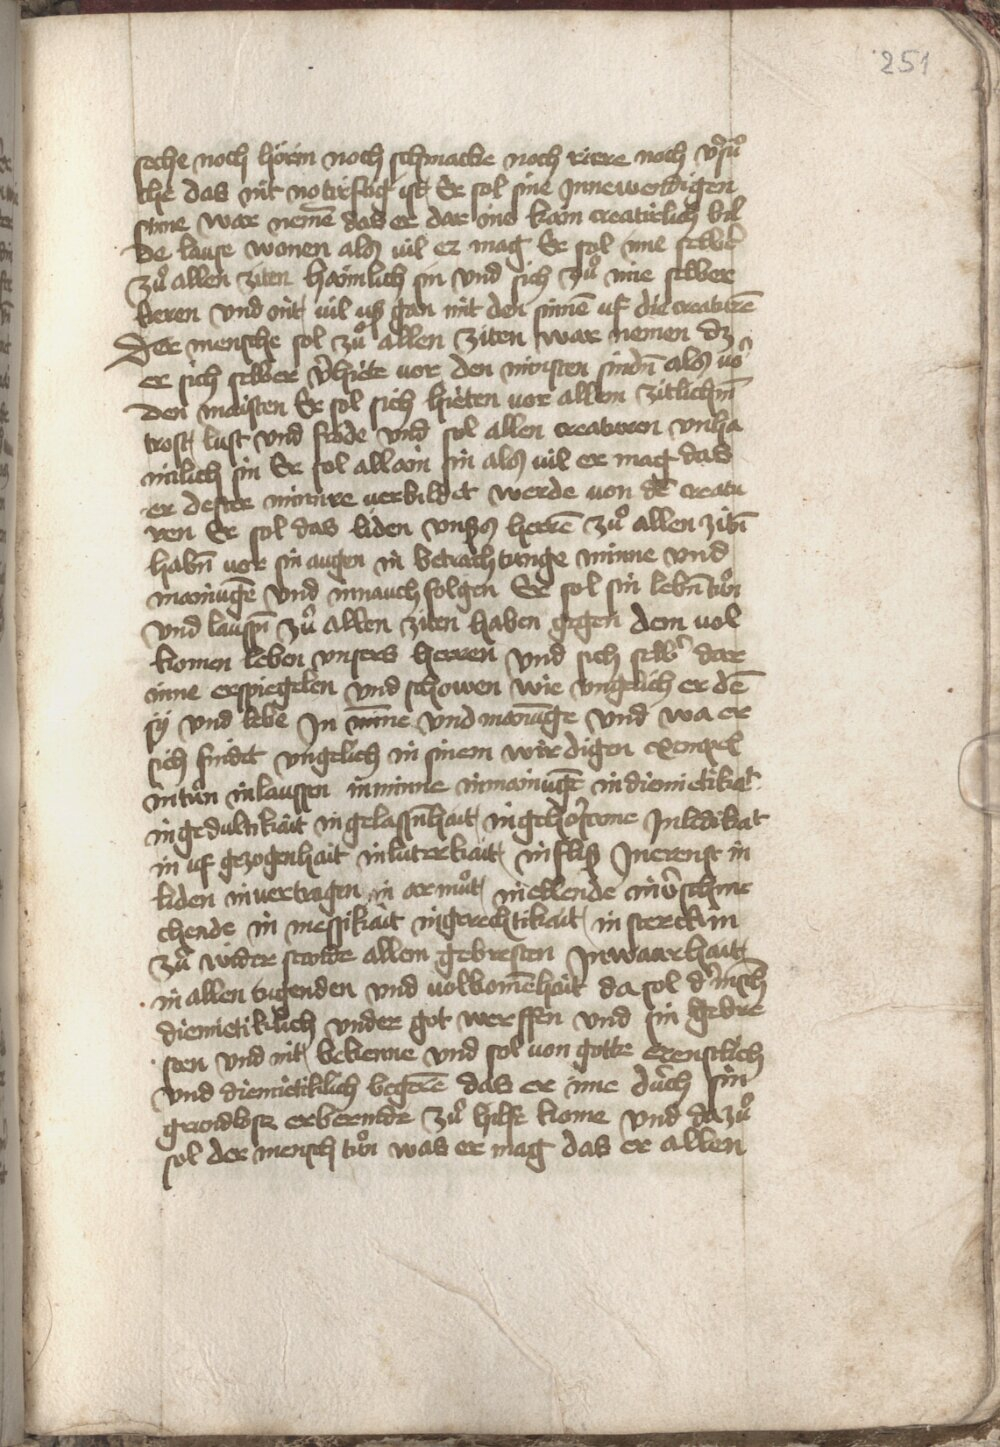 251
seche noch hörin noch schmacke noch riere noch vˢsuͦ
che das nit notirftig ist Er sol sine Innewendigen
sinne war nemē das er dar ine kain creatirlich bil
de lause wonen als vil er mag Er sol ime selbeˢ
zuͦ allen ziten haimlich sin vnd sich zuͦ ime selber
keren vnd nit vil us gan mit den sinnē vf die creaturē
Der mensche sol zuͦ allen ziten war nemen dz
er sich selber vˢhiete vor den minsten sindn̄ als vo
den maisten Er sol sich hieten vor allem zitlichm̄
trost lust vnd frode vnd sol allen creaturen vnha
imlich sin Er sol allain sin als vil er mag das
er dester minre verbildet werde von dē creatu
ren Er sol das liden vnsˢs herrē zuͦ allen zitn̄
habn̄ vor sin augen in betrachtunge minne vnd
mainūgē vnd innauchfolgen Er sol sin lebn̄ tuͦn
vnd laussn̄ zuͦ allen ziten haben gegen dem vol
komen leben vnsers herren vnd sich selbˢ dar
inne erspiegelen vnd schowen wie vngelich er dē
sy vnd lebe In minne vnd mainūge vnd wa er
sich findet vngelich in sinem wirdigen exempel
in tuͦn in laussen in minne in mainūgē in diemietikat
in gedultikait in gelassn̄hait in gehorsame In ledikat
in vf gezogenhait in luterkait in flis In ernst in
liden in vertragen in armuͦt in ellende in vˢschme
chende in messikait in gerechtikait in sterck in
zuͦ wider stande allem gebresten In waarhait
in allen tugenden vnd volkomēhait da sol dˢ mēsch
diemietiklich vnder got werffen vnd sin gebre
sten vnd nit bekenne vnd sol von gotte erenstlich
vnd diemietiklich begerē das er ime durch sin
grundlose erbermde zuͦ hilfe kome vnd dazuͦ
sol der mensch tuͦn was er mag das er allen